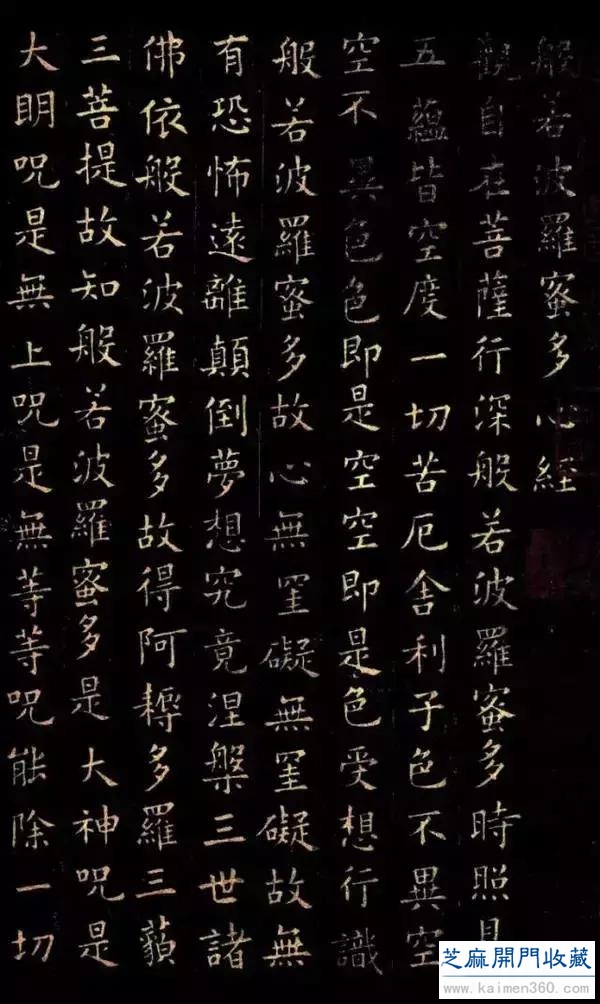 般若波羅蜜多心経
觀自在菩薩行深般若波羅蜜多時照見
五蘊皆空度一切苦厄舍利子色不異空
空不異色色即是空空即是色受想行識
般若波羅蜜多故心無罣礙無罣礙故無
有恐怖遠離顛倒夢想究竟涅槃三世諸
佛依般若波羅蜜多故得阿耨多羅三藐
三菩提故知般若波羅蜜多是大神呪是
大明呪是無上呪是無等等呪能除一切
芝麻開門收藏
www.kaimen360.com